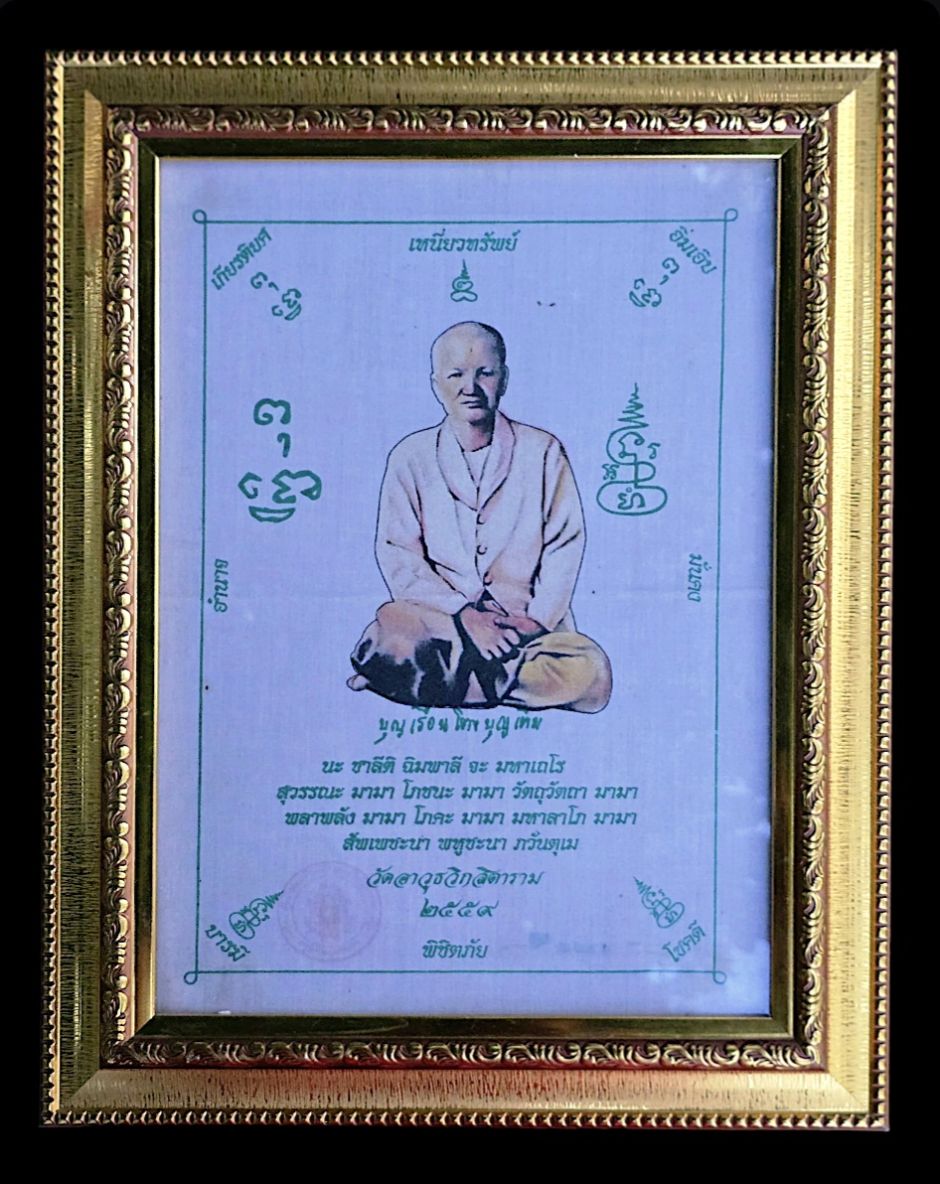 เกียรติยศ
เหนี่ยวทรัพย์
อิ่มเอิบ
อำนาจ
มั่นคง
บุญเรือน โตงบุญเติม
นะ ชาลีติ ฉิมพาลี จะ มหาเถโร
สุวรรณะ มามา โภชนะ มามา วัตถุวัตถา มามา
พลาพลัง มามา โภคะ มามา มหาลาโภ มามา
สัพเพชะนา พหูชะนา ภวันตุเม
วัดอาวุธวิกสิตาราม
๒๕๕๙
บารมี
พิชิตภัย
โชคดี